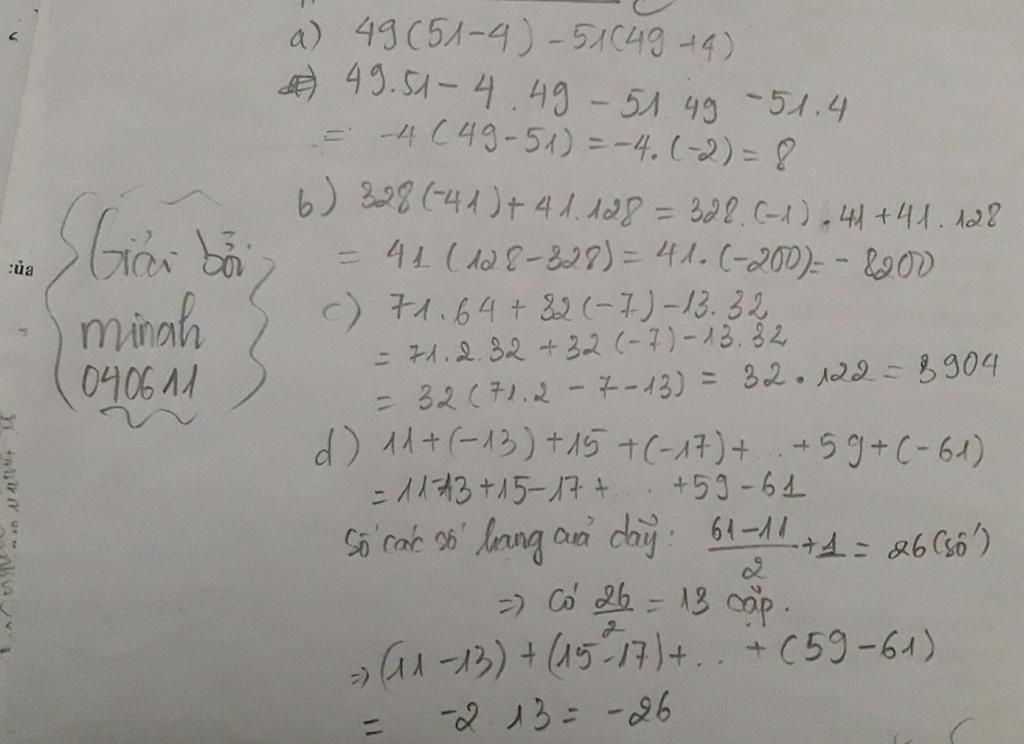 a) 49(51-4) - 51(49+4)
49.51 - 4.49 - 51.49 - 51.4
= -4(49-51) = -4.(-2) = 8
b) 328(-41) + 41.128 = 328.(-1).41 + 41.128
= 41(128-328) = 41.(-200) = -8200
c) 71.64 + 32(-7) - 13.32
= 71.2.32 + 32(-7) - 13.32
= 32(71.2 - 7 - 13) = 32.122 = 3904
d) 11+(-13)+15+(-17)+...+59+(-61)
= 11-13+15-17+...+59-61
Số các số hạng của dãy: \frac{61-11}{2}+1 = 26 (số)
=> Có \frac{26}{2} = 13 cặp.
=> (11-13)+(15-17)+...+(59-61)
= -2 13 = -26
Giải bởi
minah
040611
:ủa